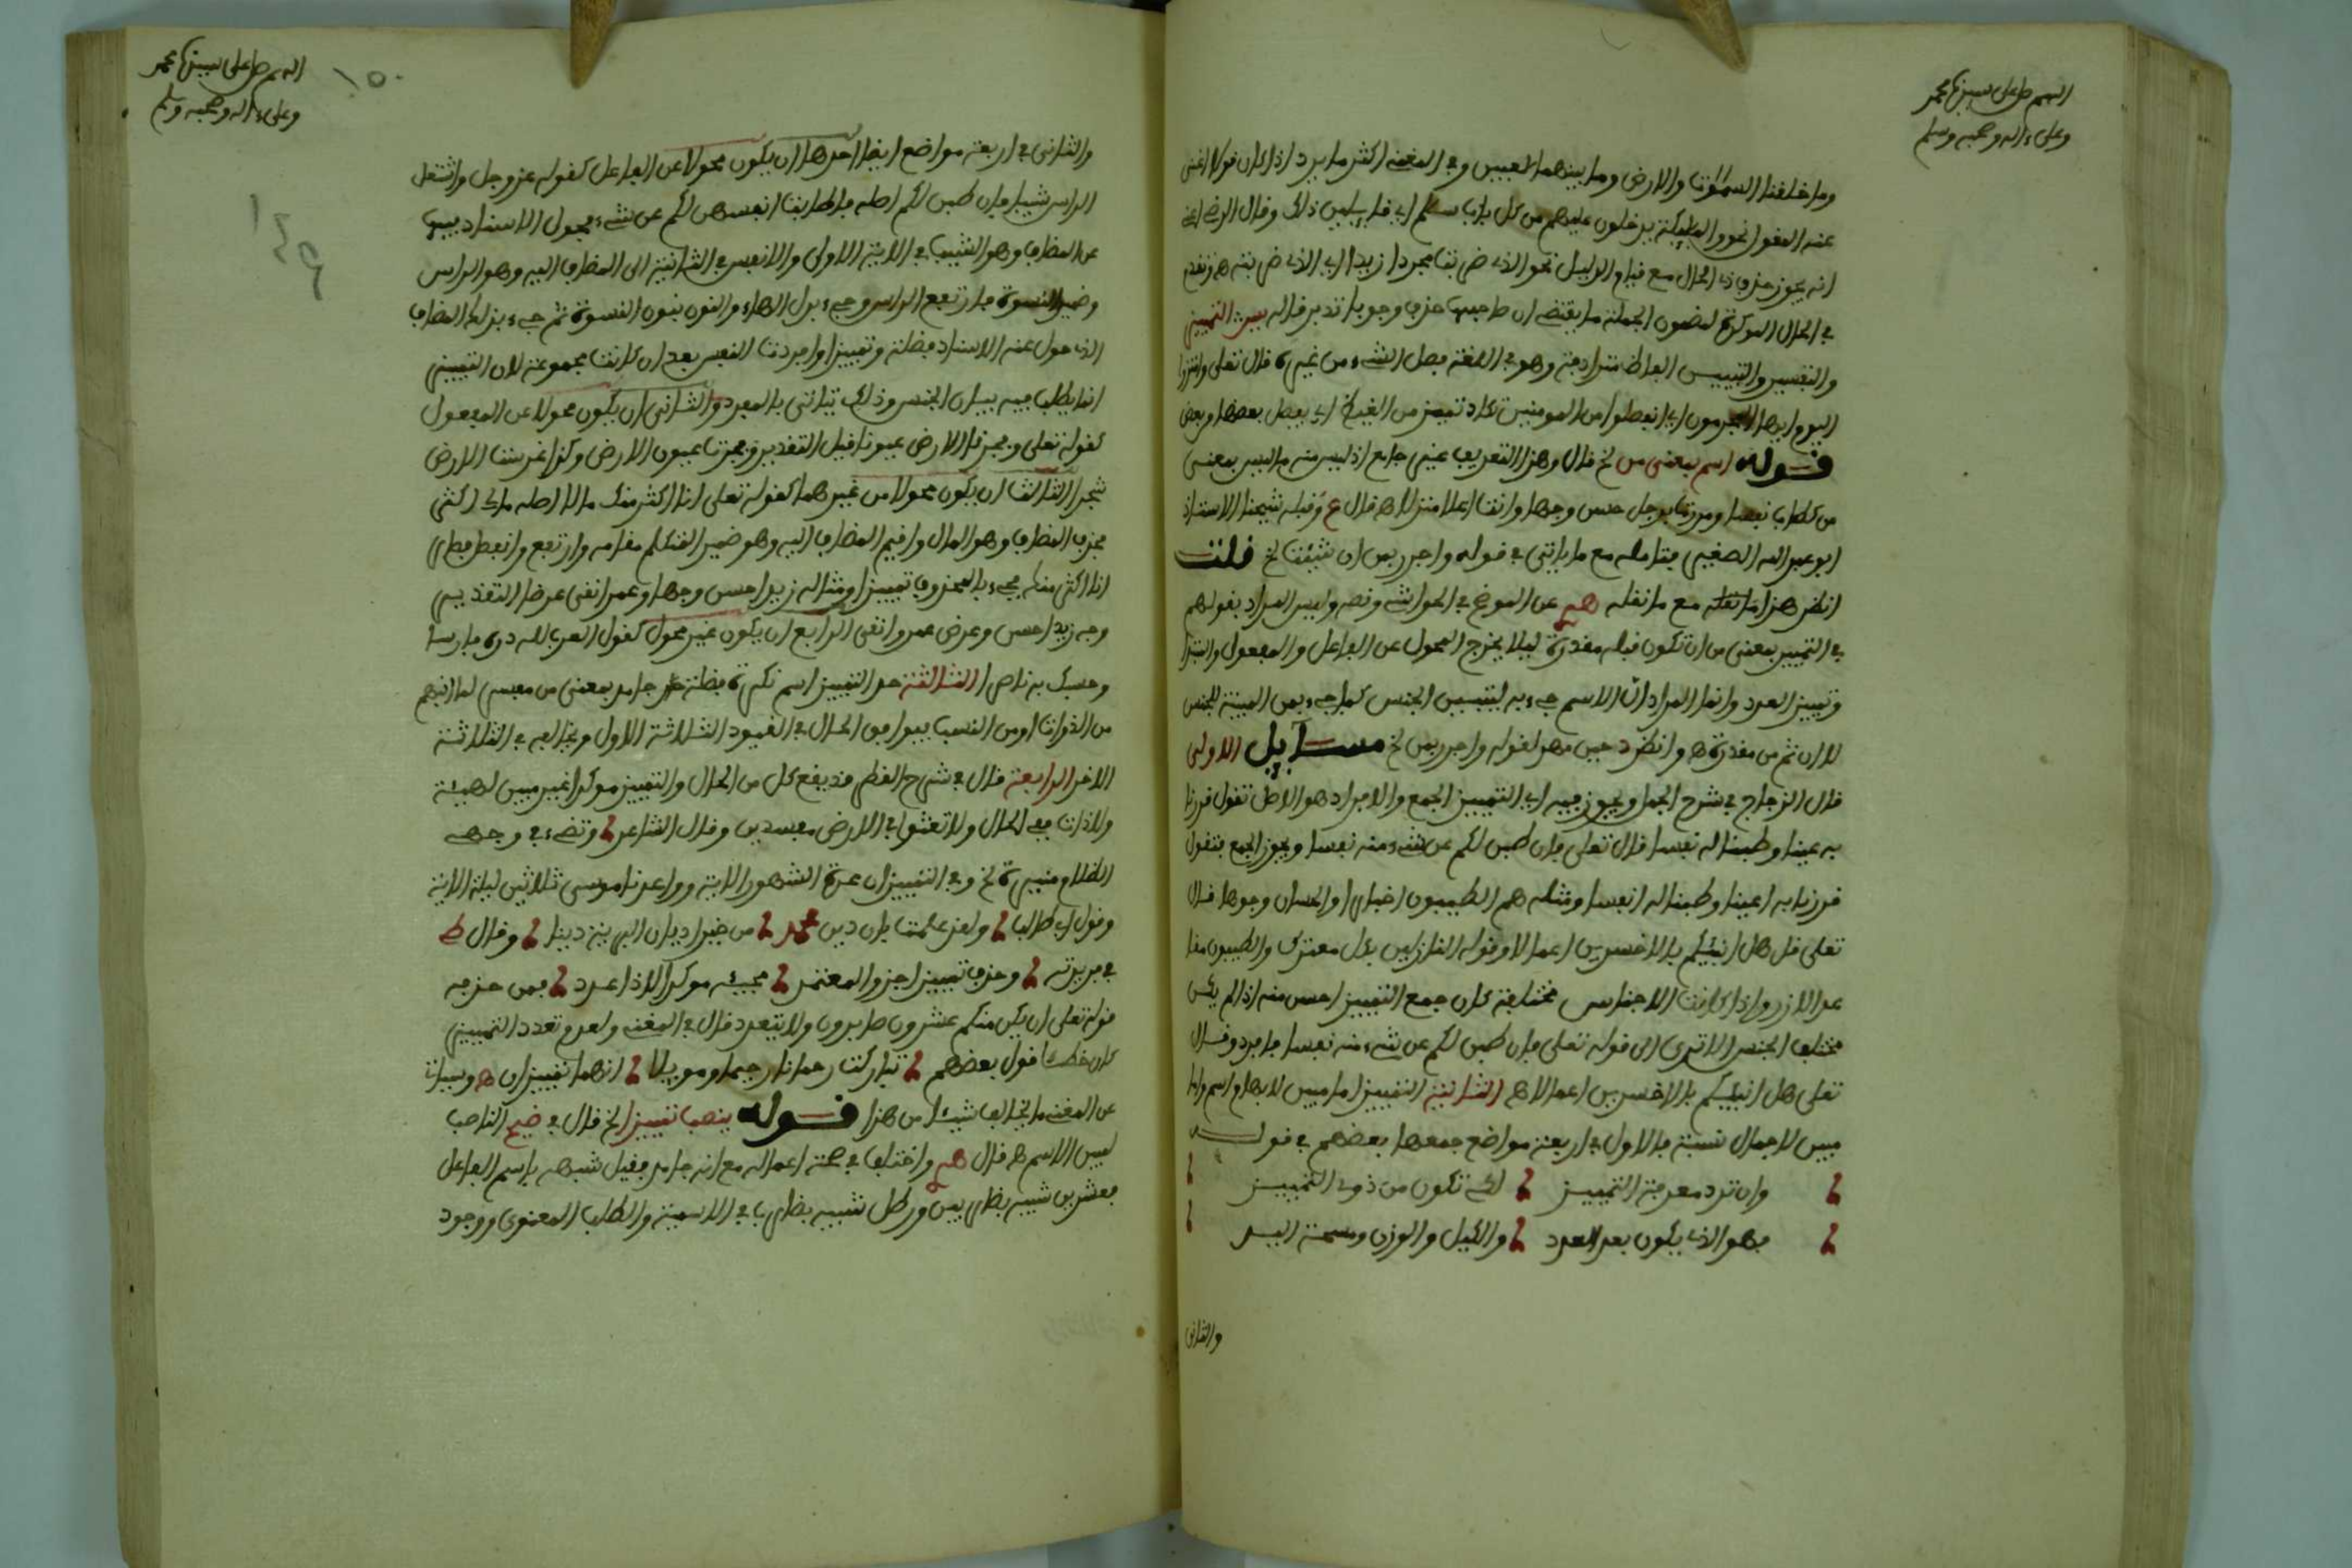 اللهم صل على سيدنا محمد
وعلى ءاله وصحبه وسلم
وما خلقنا السموات والارض وما بينهما لعبين وفي المغني اكثر ما يرد اذا كان قولا اغنى
عنه المقول نحو والمليكة يدخلون عليهم من كل باب سلم اي قايلين ذلك وقال الرضي
انه يجوز حذف ذي الحال مع قيام الدليل نحو الذي ضربت مجردا زيد اي الذي ضربته ه وتقدم
في الحال الموكدة لمضمون الجملة ما يقتضي ان صاحبها حذف وجوبا تدبر قاله يس التمييز
والتفسير والتبيين الفاظ مترادفة وهو في اللغة فصل الشيء من غيره قال تعلى وامتزوا
اليوم ايها المجرمون اي انفصلوا من المومنين تكاد تميز من الغيظ اي يفصل بعضها من بعض
قوله اسم بمعنى من لخ قال وهذا التعريف غير جامع اذ ليس منه ما ليس بمعنى
من كطاب نفسا ومررت برجل حسن وجها وانت اعلا منزلا ه قال ع وقبله شيخنا الاستاذ
ابو عبد الله الصغير بتامله مع ما ياتي في قوله واجرر بمن ان شئت لخ قلت
انظر هذا مع ما نقله عن الموضح في الحواشي ونصه وليس المراد بقولهم
في التمييز بمعنى من ان تكون قبله مقدرة ليلا يخرج المحول عن الفاعل والمفعول والمبتدا
وتمييز العدد وانما المراد ان الاسم جيء به لتبيين الجنس كما جيء بمن المبينة للجنس
لا ان ثم من مقدرة ه وانظره حين مر لقوله واجرر بمن لخ مسايل الاولى
قال الزجاج في شرح الجمل ويجوز فيه اي التمييز الجمع والافراد هو الاصل تقول قررنا
به عينا وطبنا له نفسا قال تعلى فان طبن لكم عن شيء منه نفسا ويجوز الجمع فتقول
قررنا به اعينا وطبنا له انفسا ومثله هم الطيبون اخبارا والحسان وجوها قال
تعلى قل هل انبئكم بالاخسرين اعملا وقوله النازلين بكل معترك والطيبون معا
قد الازر واذا كانت الاجناس مختلفة كان جمع التمييز احسن منه اذا لم يكن
مختلف الجنس الا ترى الى قوله تعلى فان طبن لكم عن شيء منه نفسا فافرد وقال
تعلى هل انبئكم بالاخسرين اعملا ه الثانية التمييز اما مبين لابهام اسم واما
مبين لاجمال نسبة فالاول في اربعة مواضع جمعها بعضهم في قوله
وان ترد معرفة التمييز لكي تكون من ذوي التمييز
فهو الذي يكون بعد العدد والكيل والوزن ومسحة اليد
والثاني
اللهم صل على سيدنا محمد
وعلى ءاله وصحبه وسلم
١٥٠
149
والثاني في اربعة مواضع ايضا احدها ان يكون محولا عن الفاعل كقوله عز وجل واشتعل
الراس شيبا فان طبن لكم اصله فان طابت انفسهن لكم عن شيء فحول الاسناد فيهما
عن المضاف وهو الشيب في الاية الاولى والانفس في الثانية الى المضاف اليه وهو الراس
وضمير النسوة فارتفع الراس وجيء بدل الهاء والنون بنون النسوة ثم جيء بذلك المضاف
الذي حول عنه الاسناد فضلة وتمييزا وافردت النفس بعد ان كانت مجموعة لان التمييز
انما يطلب فيه بيان الجنس وذلك يتاتى بالمفرد والثاني ان يكون محولا عن المفعول
كقوله تعلى وفجرنا الارض عيونا قيل التقدير وفجرنا عيون الارض وكذا غرست الارض
شجرا الثالث ان يكون محولا من غيرهما كقوله تعلى انا اكثر منك مالا اصله مالي اكثر
فحذف المضاف وهو المال واقيم المضاف اليه وهو ضمير المتكلم مقامه وارتفع وانفصل فصار
انا اكثر منك فجيء بالمحذوف تمييزا ومثاله زيد احسن وجها وعمر انقى عرضا التقدير
وجه زيد احسن وعرض عمر وانقى الرابع ان يكون غير محول كقول العرب لله دره فارسا
وحسبك به ناصرا الثالثة حد التمييز اسم نكرة فضلة جامد بمعنى من مفسر لما انبهم
من الذوات او من النسب فيوافق الحال في القيود الثلاثة الاول ويخالفه في الثلاثة
الاخر الرابعة قال في شرح القطر قد يقع كل من الحال والتمييز موكدا غير مبين لهيئة
ولا ذات فمع الحال ولا تعثوا في الارض مفسدين وقال الشاعر وتضيء في وجه
الظلام منيرة لخ وفي التمييز ان عدة الشهور الاية وواعدنا موسى ثلاثين ليلة الاية
وقول ابي طالب ولقد علمت بان دين محمد من خير اديان البرية دينا وقال ط
في فريدته وحذف تمييز اجز والمعتمر مجيئه موكدا لاذا عدد فمن حذفه
قوله تعلى ان يكن منكم عشرون صابرون ولا يتعدد قال في المغني ولعدم تعدد التمييز
كان خطا قول بعضهم تباركت رحمانا رحيما وموئلا انهما تمييزان ه وسيات
عن المغني ما يخالف شيئا من هذا قوله ينصب تمييزا لخ قال في ضيح الناصب
لمبين الاسم ه قال واختلف في صحة اعماله مع انه جامد فقيل شبهه باسم الفاعل
فعشرين شبيه بضاربين ورطل شبيه بضارب في الاسمية والطلب المعنوي ووجود